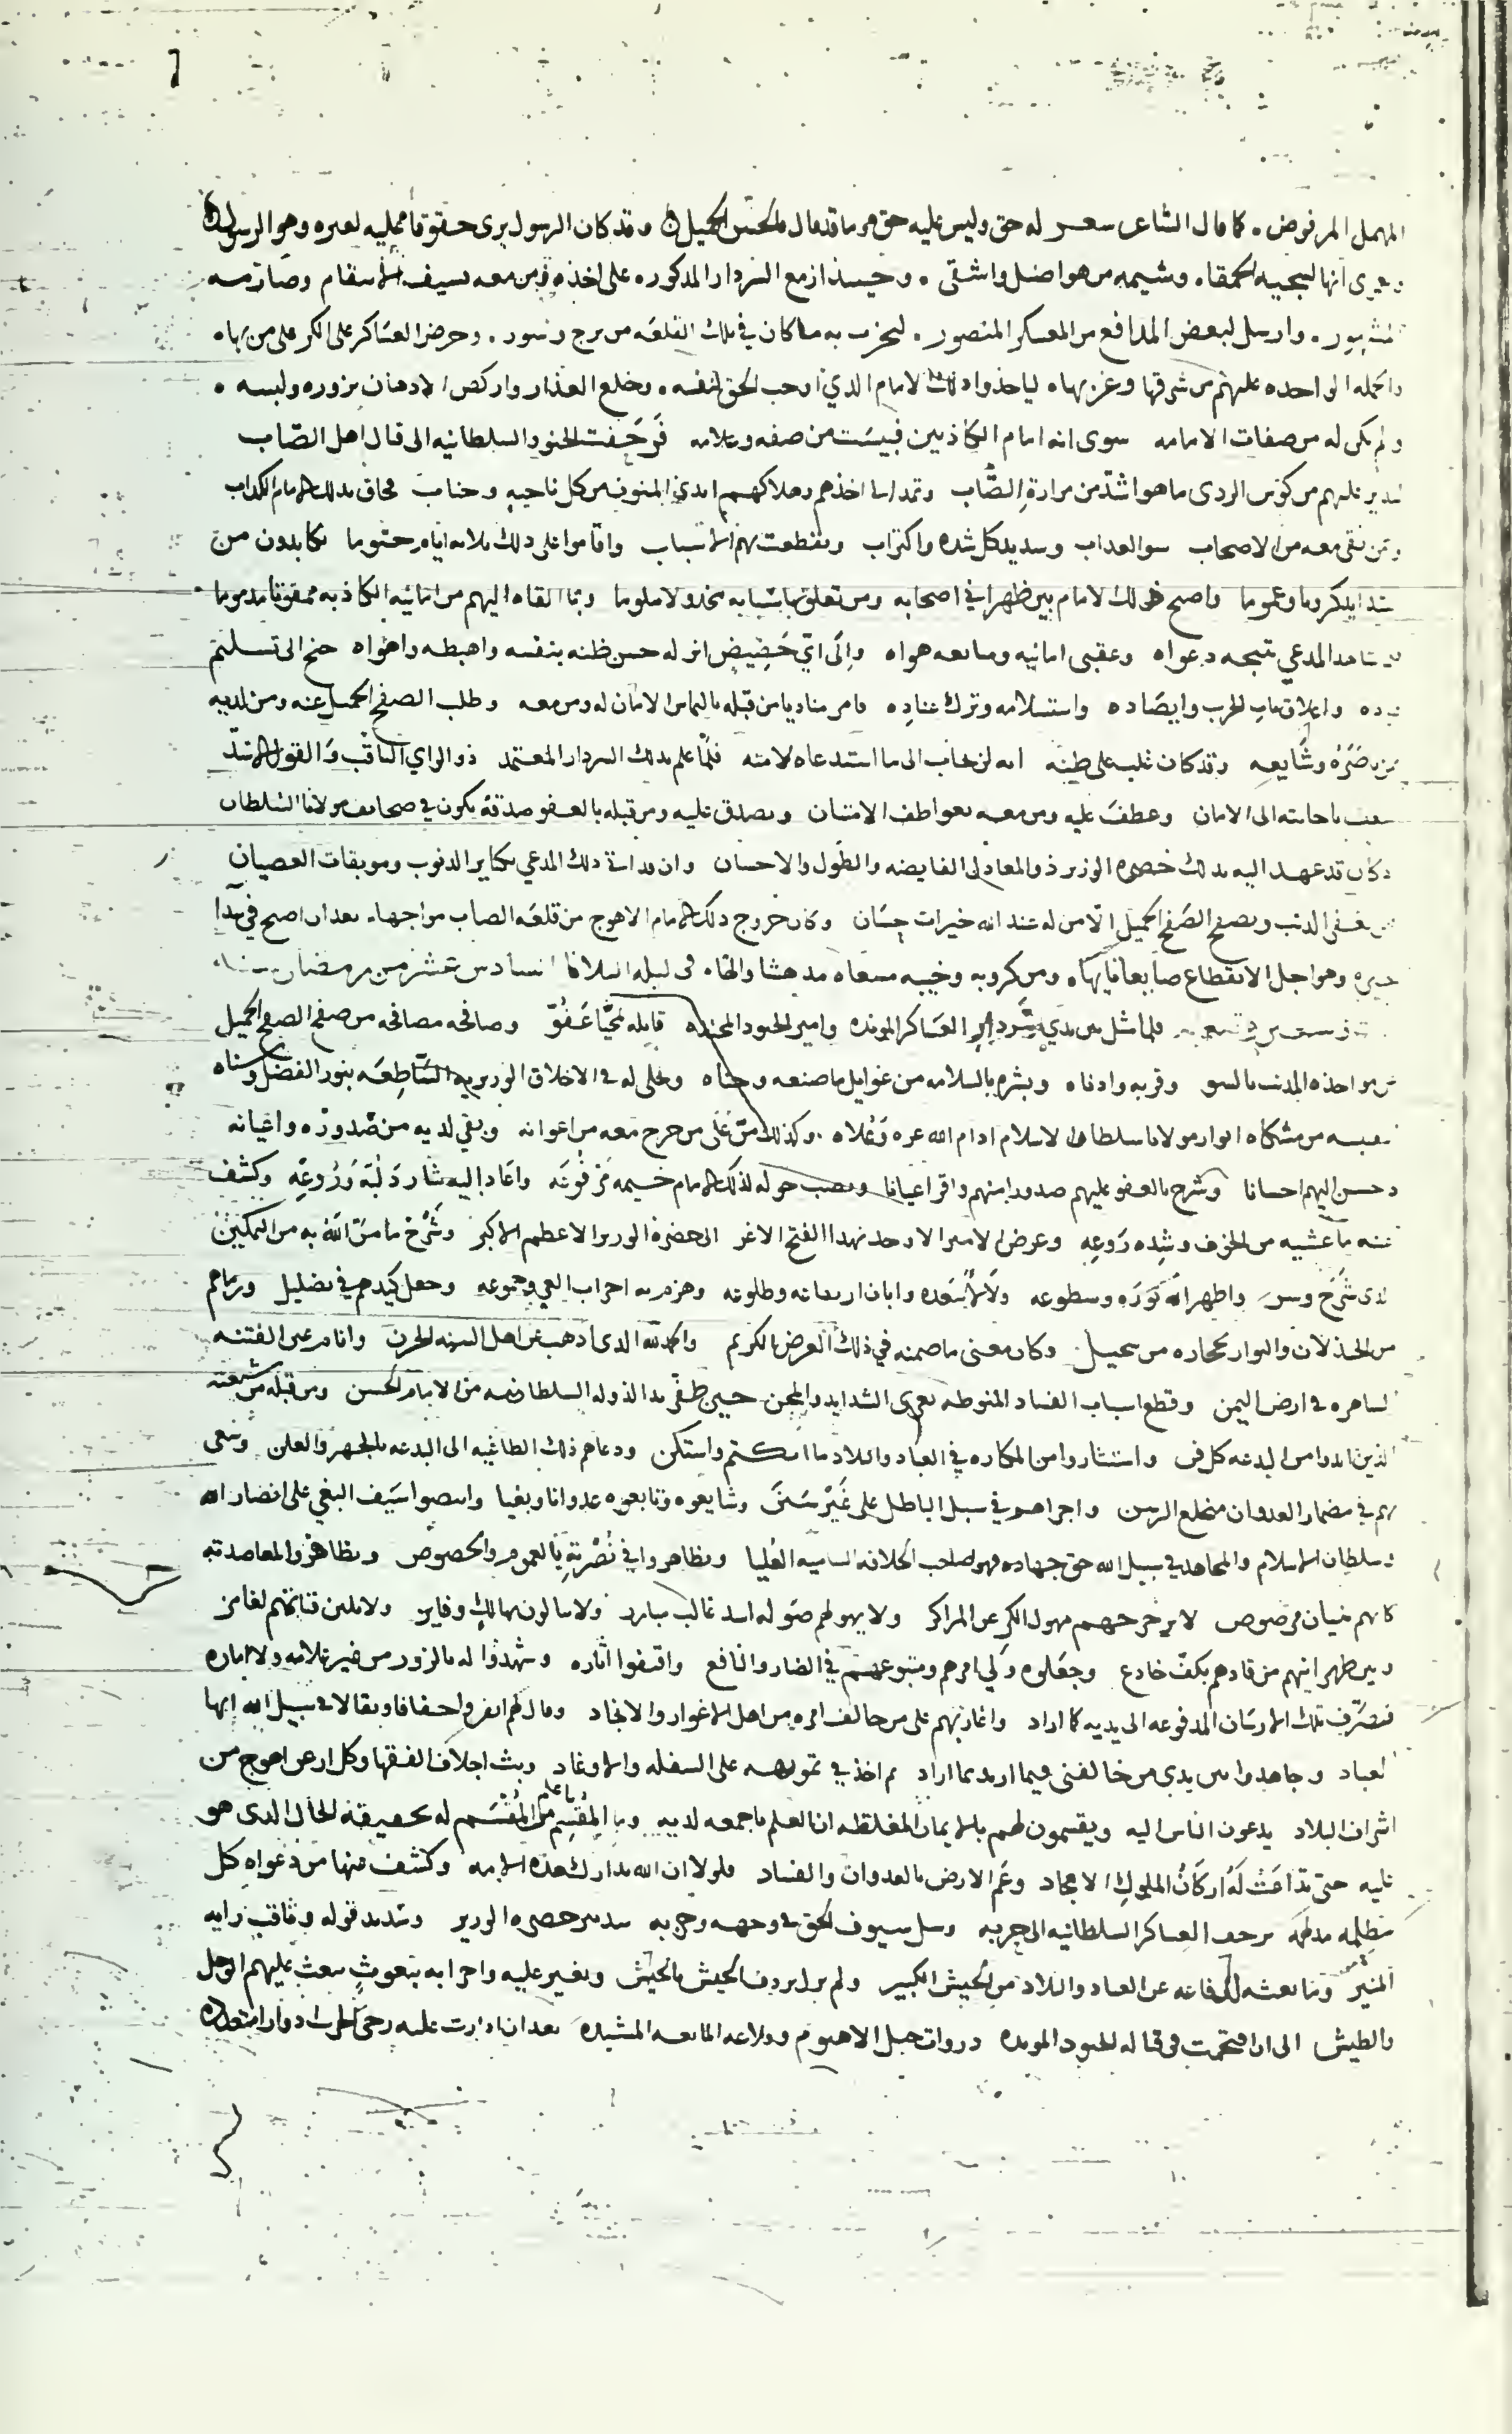 المهمل المرفوض . كما قال الشاعر شعر له حق وليس عليه حق ومهما قال فالحسن الجميل وقد كان الرسول يرى حقوقا عليه لغيره وهو الرسول
انها لسجيه الحمقاء وشيمه من هو اضل واشقى . وحينئذ ازمع السردار المذكور على اخذه ومن معه بسيف الانتقام وصارمه
المشهور . وارسل لبعض المدافع من المعسكر المنصور . ليخرب به ما كان في تلك القلعه من برج وسور . وحرض العساكر على الكر على من بها
والحمله الواحده عليهم من شرقها وغربها لياخذوا ذلك الامام الذي اوجب الحق لنفسه . وخلع العذار واركض الادهان بزوره ولبسه .
ولم يكن له من صفات الامامه سوى انه امام الكاذبين فبئست من صفه وعلامه فزحفت الجنود السلطانيه الى قتال اهل الصاب
تدير عليهم من كؤس الردى ما هو اشد من مرارة الصاب وتمد الى اخذهم وهلاكهم ايدي المنون من كل ناحيه وجناب فحاق بذلك الامام الكذاب
ومن بقي معه من الاصحاب سوء العذاب وشديد كل شده واكتراب وتقطعت بهم الاسباب واقاموا على ذلك ثلاثه ايام حسوما يكابدون من
شدايد كروبا وغموما واصبح ذلك الامام بين ظهراني اصحابه ومن تعلق باسبابه مخذولا ملوما وبما القاه اليهم من امانيه الكاذبه ممقوتا مذموما
شاهد المدعي نتيجه دعواه وعقبى امانيه ومتابعه هواه والى اي حضيض انزله حسن ظنه بنفسه واهبطه واهواه جنح الى تسليم
واغلاق باب الحرب وايصاده واستسلامه وترك عناده فامر مناديا من قبله بالتماس الامان له ومن معه وطلب الصفح الجميل عنه ومن لديه
وشايعه وقد كان غلب على ظنه انه لن يجاب الى ما استدعاه لامنه فلما علم بذلك السردار المعتمد ذو الراي الثاقب والقول الاسد
باجابته الى الامان وعطف عليه ومن معه بعواطف الامتنان وتصدق عليه ومن قبله بالعفو صدقة يكون في صحايف مولانا السلطان
وكان قد عهد اليه بذلك حضرة الوزير ذو المعالي الفايضه والطول والاحسان وان بدا من ذلك المدعي كباير الذنوب وموبقات العصيان
الذنب ويصفح الصفح الجميل الا من له عند الله خيرات حسان وكان خروج ذلك الامام الاهوج من قلعه الصاب مواجها بعد ان اصبح في بيدا
وهو اجل الانقطاع ضايعا تايها ومن كروبه وخيبه مسعاه مدهشا والها في ليله الثلاثا السادس عشر من رمضان سنه
فلما مثل بين يدي سردار العساكر المؤيده وامير الجنود المجنده قابله بمحيا عفو وصافحه مصافحه من صفح الصفح الجميل
من مواخذه المذنب بالسو وقربه وادناه وبشره بالسلامه من غوايل ما صنعه وجناه وتجلى له في الاخلاق الوزيريه الساطعه بنور الفضل وسناه
من مشكاه انوار مولانا سلطان الاسلام ادام الله عزه وعلاه . وكذلك من على من خرج معه من اعوانه وبقي لديه من صدوره واعيانه
وحسن اليهم احسانا وشرح بالعفو عليهم صدورا منهم واقر اعيانا ونصب حوله لذلك الامام خيمه مرفوعه واعاد اليه شارد لبه وروعه وكشف
عنه ما غشيه من الخوف وشده روعه وعرض الامير الاوحد بهذا الفتح الاغر الى حضرة الوزير الاعظم الاكبر وشرح ما من الله به من التمكين
الذي شرح وسر واظهر الله نوره وسطوعه ولالأ سعده وابان ارتفاعه وطلوعه وهزم به احزاب البغي وجموعه وجعل كيدهم في تضليل ورماهم
من الخذلان والبوار بحجاره من سجيل وكان معنى ما ضمنه في ذلك العرض الكريم والحمد لله الذي اذهب عن اهل السنه الحزن وانام عين الفتنه
الساهره في ارض اليمن وقطع اسباب الفساد المنوطه بعرى الشدايد والمحن حين ظفر يد الدوله السلطانيه من الامام الحسن ومن قبله من شيعته
الذين ابدوا من البدعه كل فن واستثاروا من المكاره في العباد والبلاد ما اكتتم واستكن ودعاهم ذلك الطاغيه الى البدعه بالجهر والعلن وسعى
بهم في مضمار العدوان منخلع الرسن واجراهم في سبل الباطل على غير سنن وشايعوه وتابعوه عدوانا وبغيا وانتضوا سيف البغي على انصار الله
وسلطان الاسلام والمجاهد في سبيل الله حق جهاده فهو صاحب الخلافه الساميه العليا وتظاهروا في نصرته بالعموم والخصوص وتظافروا لمعاضدته
كانهم بنيان مرصوص لا يزحزحهم مهول الكر عن المراكز ولا يهولهم صوله اسد غالب مبارز ولا يبالون بهالك وفايز ولا تلين قناتهم لغامز
وبين ظهرانيهم من قادهم بكف خادع وجعلوه ولي امرهم ومتبوعهم في الضار والنافع واقتفوا اثاره وشهدوا له بالزور من غير علامه ولا اماره
فتصرف بتلك الارسان المدفوعه الى يديه كما اراد واغار بهم على من خالف امره من اهل الاغوار والانجاد وقال لهم انفروا خفافا وثقالا في سبيل الله ايها
العباد وجاهدوا بين يدي من خالفني فيما اريد بما اراد ثم اخذ في تمويهه على السفله والاوغاد وبث اجلاف الفقها وكل ارعن اهوج من
اشراف البلاد يدعون الناس اليه ويقسمون لهم بالايمان المغلظه ان العلم باجمعه لديه وما المقسم باعلم من المقسم له بحقيقة الحال الذي هو
عليه حتى تداعت له اركان الملوك الامجاد وعم الارض بالعدوان والفساد فلولا ان الله تدارك هذه الامه وكشف عنها من دعواه كل
مظلمه مدلهمه بزحف العساكر السلطانيه الى حربه وسل سيوف الحق في وجهه وحزبه بتدبير حضرة الوزير وسديد قوله وثاقب رايه
المنير وما بعثه لدفاعه عن العباد والبلاد من الجيش الكبير ولم يزل يردف الجيش بالجيش ويغير عليه واحزابه ببعوث يبعث عليهم الوجل
والطيش الى ان اقتحمت في قتاله الجنود المؤيده ذروات جبل الاهنوم وقلاعه المانعه المشيده بعد ان ادارت عليه رحى الحرب ادوارا متعدده